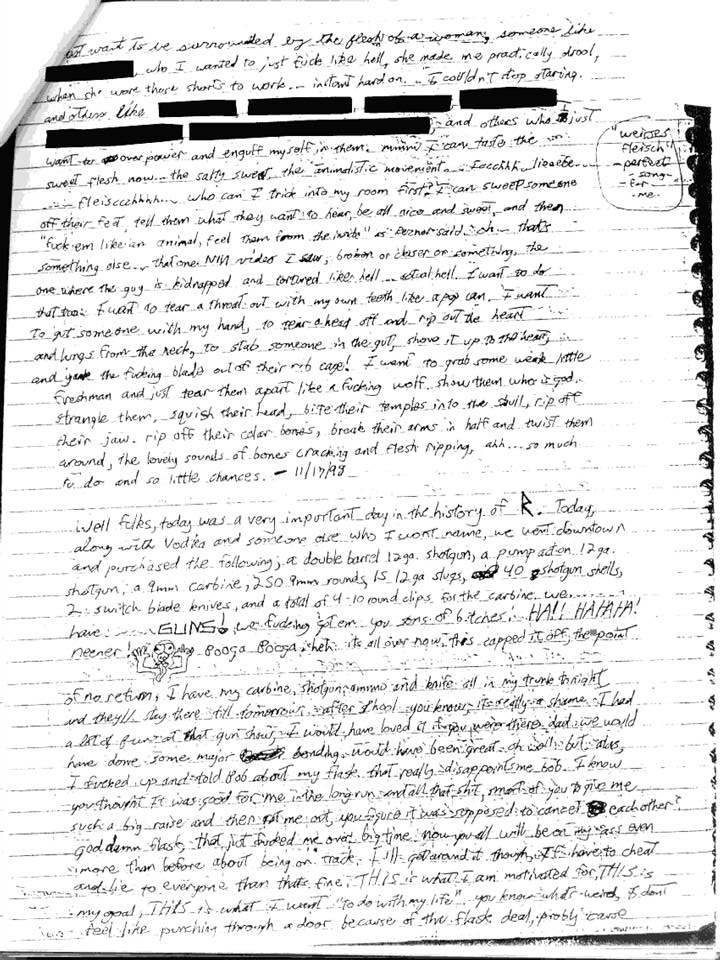 just want to be surrounded by the flesh of a woman, someone like
who I wanted to just fuck like hell, she made me practically drool,
when she wore those shorts to work... instant hard on. I couldn't stop staring.
and others like
and others who I just
want to overpower and engulf myself in them. mmmm I can taste the
sweet flesh now... the salty sweet, the animalistic movement..
fleisccchhhh... who can I trick into my room first? I can sweep someone
off their feet, tell them what they want to hear, be all nice and sweet, and then
"fuck em like an animal, feel them from the inside" as Reznor said. oh... thats
something else... that one NIN video I saw, broken or closer or something, the
one where the guy is kidnapped and tortured like hell... actual hell. I want to do
that too. I want to tear a throat out with my own teeth like a pop can. I want
to gut someone with my hand, to tear a head off and rip out the heart
and lungs from the neck, to stab someone in the gut, shove it up to the heart,
and yank the fucking blade out of their rib cage! I want to grab some weak little
freshman and just tear them apart like a fucking wolf. show them who is god.
strangle them, squish their head, bite their temples into the skull, rip off
their jaw. rip off their colar bones, break their arms in half and twist them
around, the lovely sounds of bones cracking and flesh ripping, ahh... so much
to do and so little chances. - 11/17/98
"weisses
fleisch"
- perfect
- song -
- for -
- me -
Well folks, today was a very important day in the history of R. Today,
along with Vodka and someone else who I wont name, we went downtown
and purchased the following; a double barrel 12ga. shotgun, a pump action 12 ga.
shotgun, a 9mm carbine, 250 9mm rounds, 15 12ga slugs, 40 shotgun shells,
2 switch blade knives, and a total of 4-10 round clips for the carbine. we
have ..... GUNS! we fucking got em you sons of bitches! HA!! HAHAHA!
neener! Booga Booga. heh. its all over now, this capped it off, the point
of no return, I have my carbine, shotgun, ammo and knife all in my trunk tonight
and they'll stay there till tomorrow... after school you know, its really a shame. I had
a lot of fun at that gun show, I would have loved it if you were there dad. we would
have done some major bonding. would have been great. oh well. but alas,
I fucked up and told Bob about my flask. that really disappoints me Bob. I know
you thought it was good for me in the long run and all that shit, smart of you to give me
such a big raise and then rat me out, you figure it was supposed to cancel each other?
god damn flask, that just fucked me over big time. now you all will be on my ass even
more than before about being on track. I'll get around it though, If I have to cheat
and lie to everyone than thats fine. THIS is what I am motivated for, THIS is
my goal, THIS is what I want "to do with my life". you know whats weird, I dont
feel like punching through a door because of the flask deal, probly cause